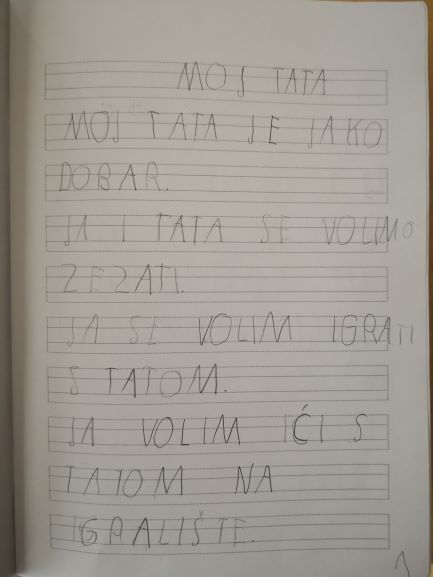 MOJ TATA
MOJ TATA JE JAKO
DOBAR.
JA I TATA SE VOLIMO
ZEZATI.
JA SE VOLIM IGRATI
S TATOM.
JA VOLIM IĆI S
TATOM NA
IGRALIŠTE.